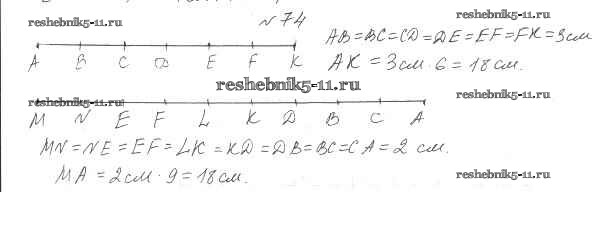 № 74
reshebnik5-11.ru
reshebnik5-11.ru
A B C D E F K
AB=BC=CD=DE=EF=FK=3см
AK=3см·6=18см.
reshebnik5-11.ru
reshebnik5-11.ru
reshebnik5-11.ru
M N E F L K D B C A
MN=NE=EF=LK=KD=DB=BC=CA=2 см.
MA=2см·9=18см.
reshebnik5-11.ru